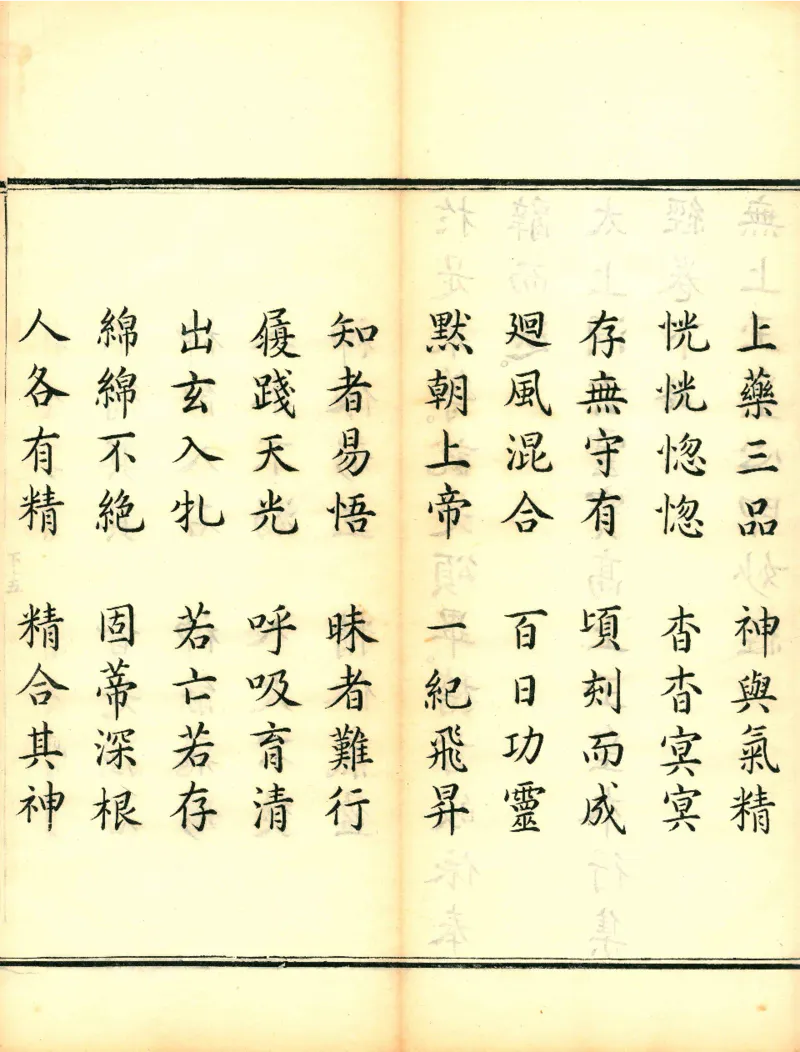 上藥三品 神與氣精
恍恍惚惚 杳杳冥冥
存無守有 頃刻而成
廻風混合 百日功靈
默朝上帝 一紀飛昇
知者易悟 昧者難行
履踐天光 呼吸育清
出玄入牝 若亡若存
綿綿不絶 固蒂深根
人各有精 精合其神